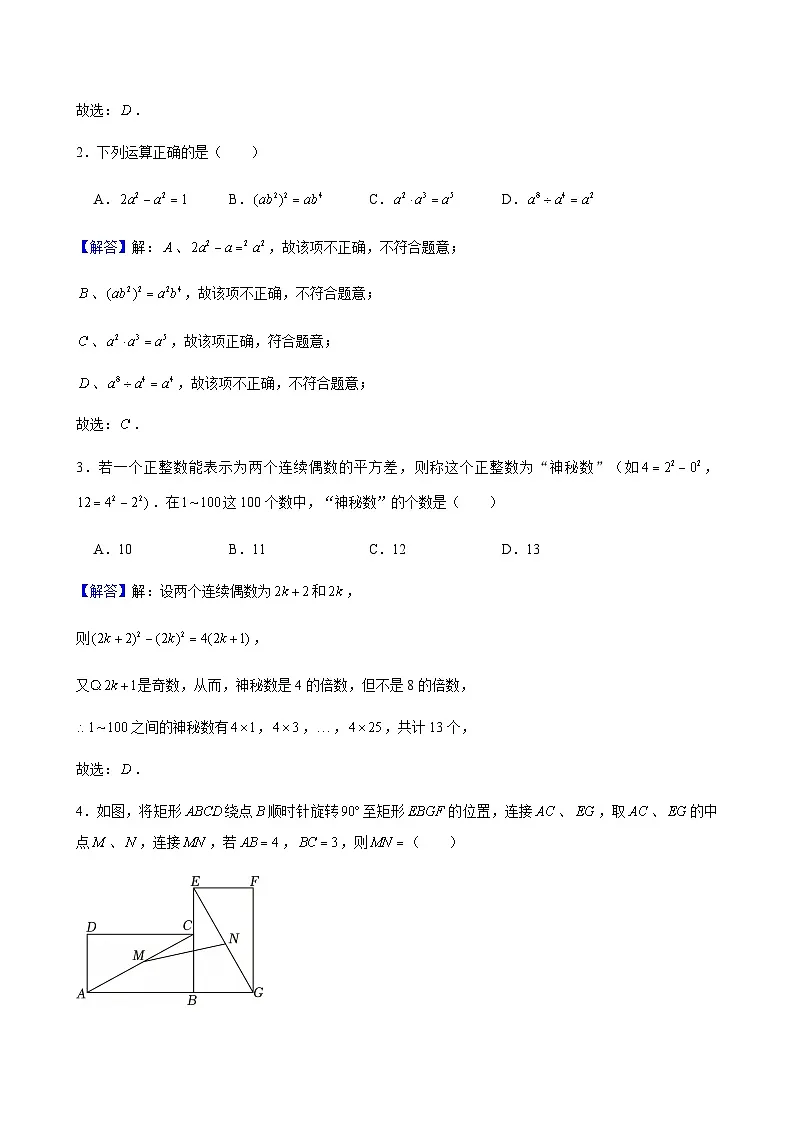 故选：D．
2．下列运算正确的是（　　）
A．2a² − a² = 1　B．(ab²)² = ab⁴　C．a² · a³ = a⁵　D．a⁸ ÷ a⁴ = a²
【解答】解：A、2a² − a =² a²，故该项不正确，不符合题意；
B、(ab²)² = a²b⁴，故该项不正确，不符合题意；
C、a² · a³ = a⁵，故该项正确，符合题意；
D、a⁸ ÷ a⁴ = a⁴，故该项不正确，不符合题意；
故选：C．
3．若一个正整数能表示为两个连续偶数的平方差，则称这个正整数为“神秘数”（如4 = 2² − 0²，
12 = 4² − 2²)．在1～100这100个数中，“神秘数”的个数是（　　）
A．10　B．11　C．12　D．13
【解答】解：设两个连续偶数为2k + 2和2k，
则(2k + 2)² − (2k)² = 4(2k + 1)，
又Q 2k + 1是奇数，从而，神秘数是4的倍数，但不是8的倍数，
∴1～100之间的神秘数有4×1，4×3，…，4×25，共计13个，
故选：D．
4．如图，将矩形ABCD绕点B顺时针旋转90°至矩形EBGF的位置，连接AC、EG，取AC、EG的中
点M、N，连接MN，若AB = 4，BC = 3，则MN =（　　）
E F
D C
M N
A B G